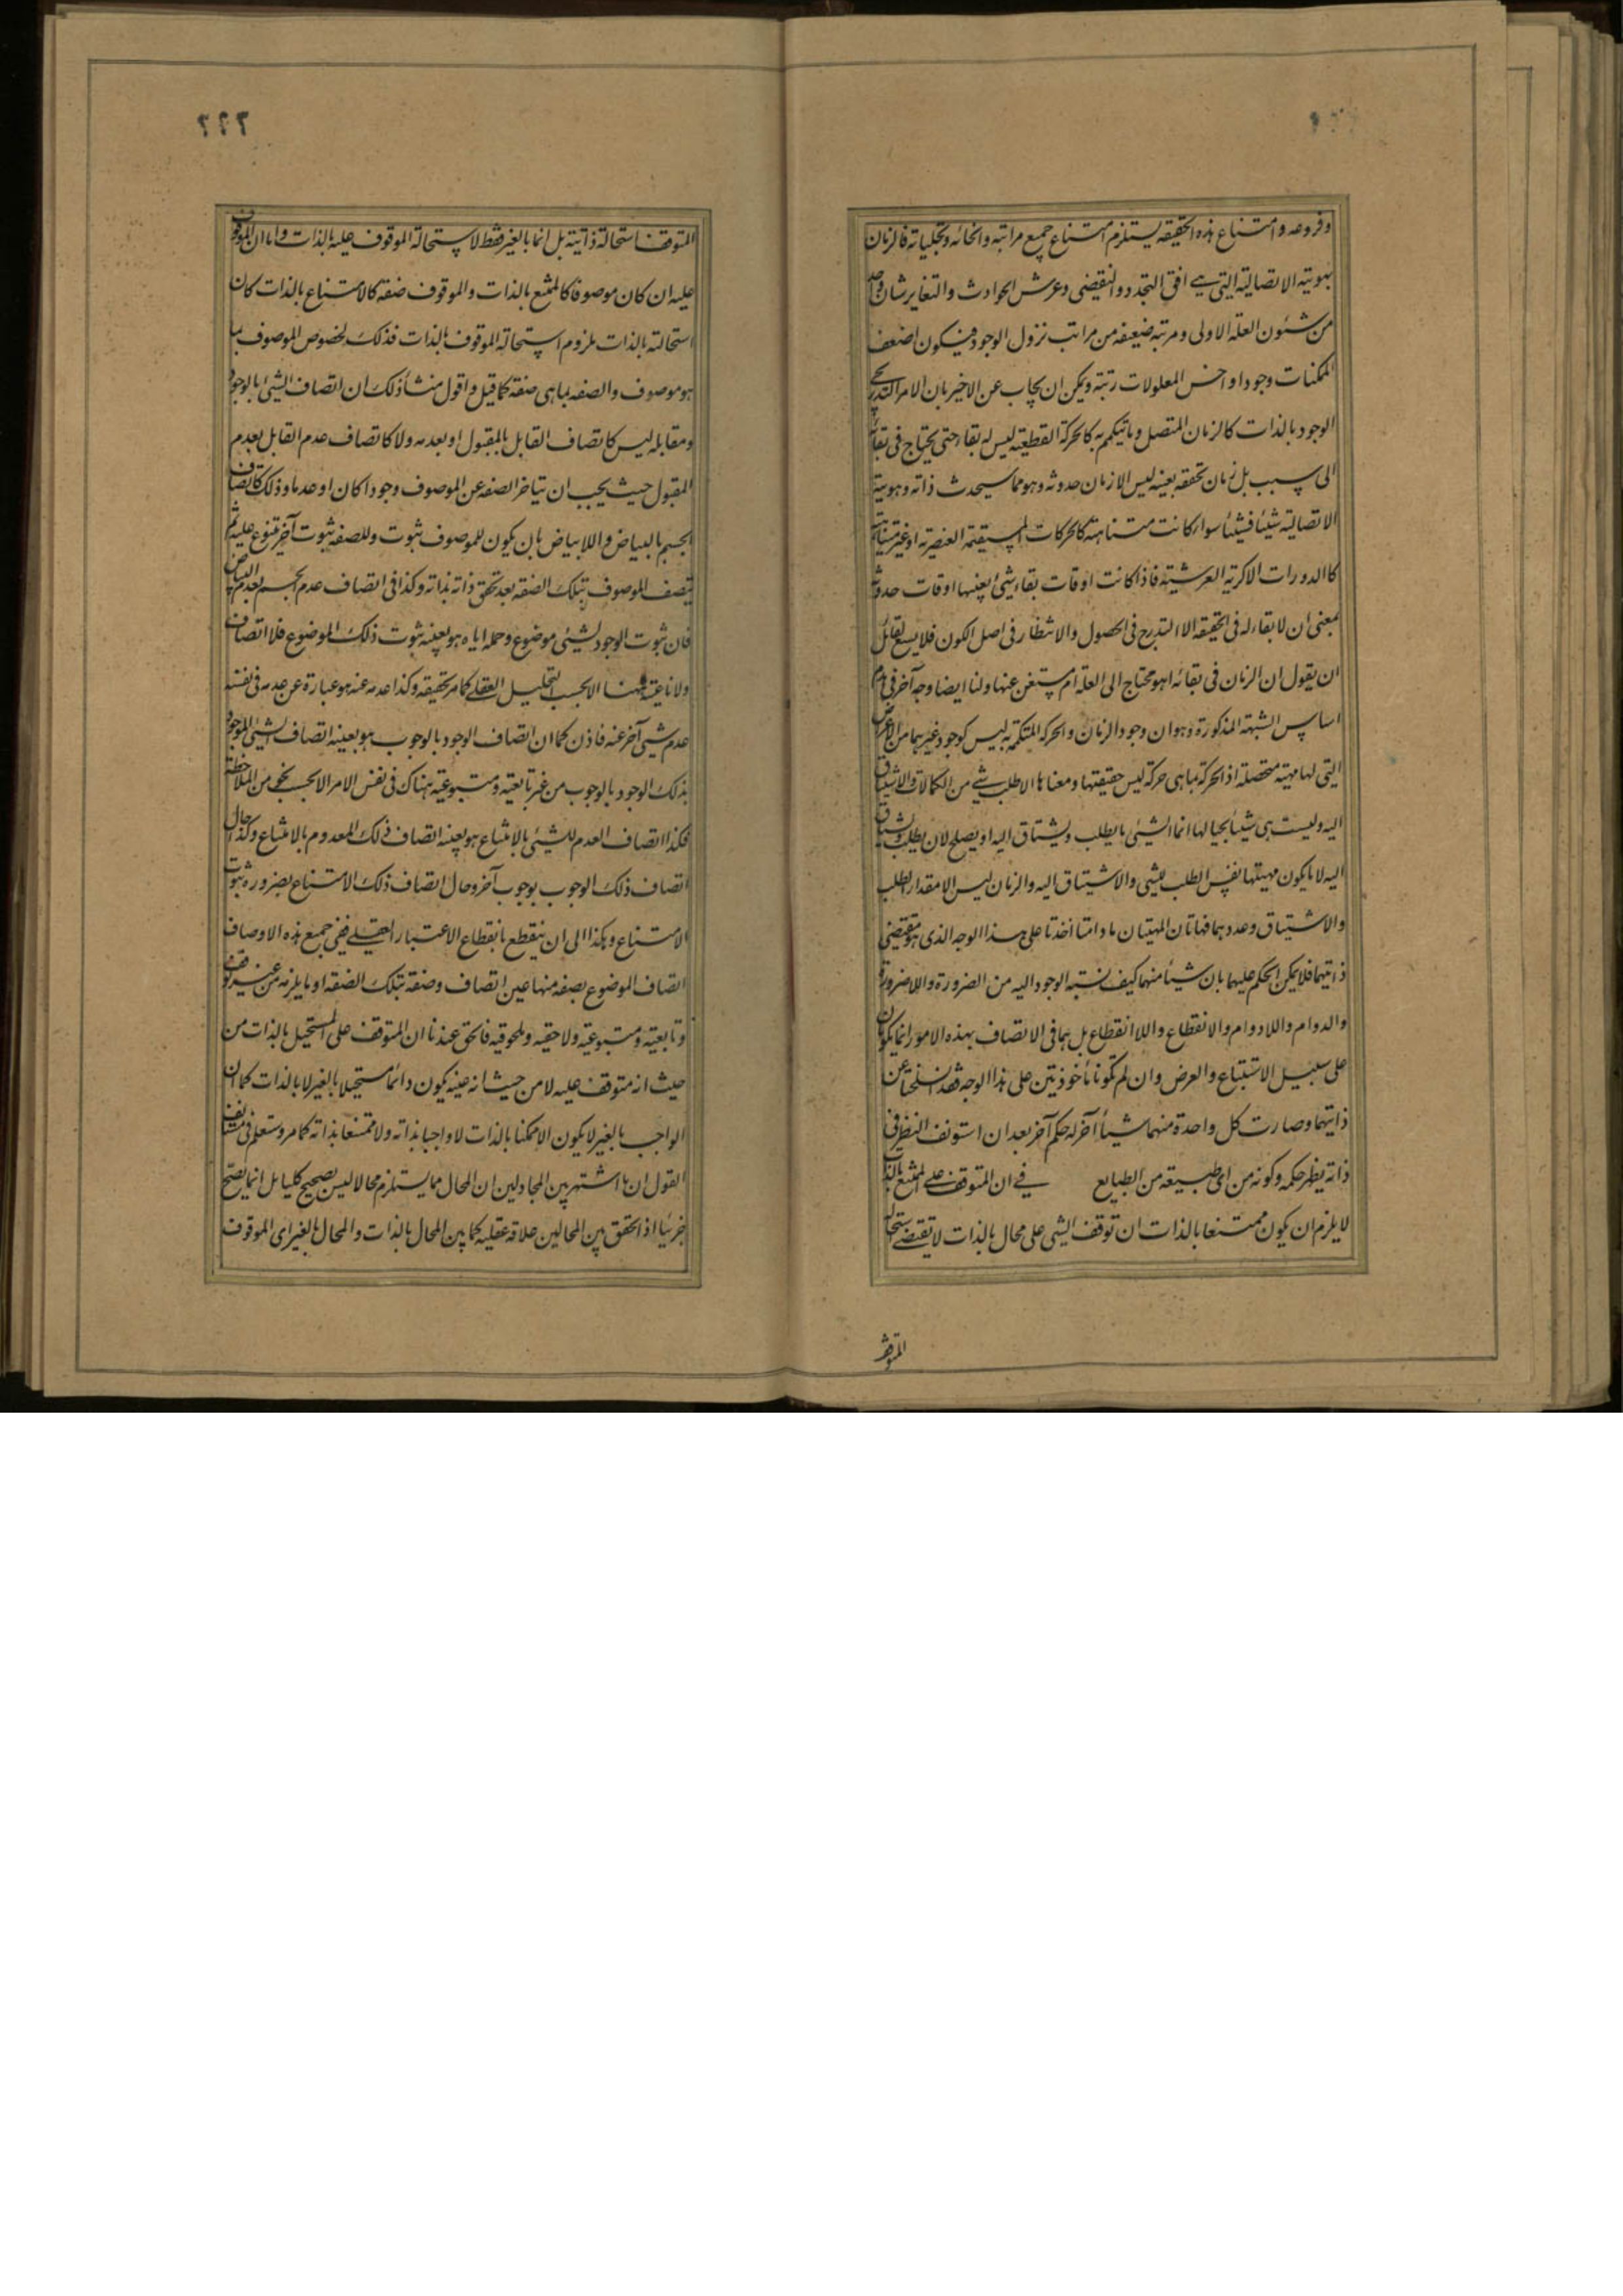 وفروعه وامتناع هذه الحقيقة يستلزم امتناع جميع مراتبه وانحائه وتجلياته فالزمان
بهويته الاتصالية التي هي افق التجدد والتقضي وعرش الحوادث والتغاير شان واحد
من شئون العلة الاولى ومرتبة ضعيفة من مراتب نزول الوجود فيكون اضعف
الممكنات وجودا واخس المعلولات رتبة ويمكن ان يجاب عن الاخير بان الامر التدريجي
الوجود بالذات كالزمان المتصل وما يتكمم به كالحركة القطعية ليس له بقاء حتى يحتاج في بقائه
الى سبب بل زمان تحققه بعينه ليس الا زمان حدوثه وهو مما سيحدث ذاته وهويته
الاتصالية شيئا فشيئا سواء كانت متناهية كالحركات المستقيمة العنصرية او غير متناهية
كالدورات الاكرية العرشية فاذا كانت اوقات بقاء شيء بعينها اوقات حدوثه
بمعنى ان لا بقاء له في الحقيقة الا التدرج في الحصول والانتظار في اصل الكون فلا يسع لقائل
ان يقول ان الزمان في بقائه اهو محتاج الى العلة ام مستغن عنها ولنا ايضا وجه آخر في هدم
اساس الشبهة المذكورة وهو ان وجود الزمان والحركة المتكممة به ليس كوجود غيرهما من الاعراض
التي لها مهية متحصلة اذ الحركة بما هي حركة ليس حقيقتها ومعناها الا طلب شي من الكمالات والاشتياق
اليه وليست هي شيئا بحيالها انما الشيء ما يطلب ويشتاق اليه او يصلح لان يطلب ويشتاق
اليه لا ما يكون مهيتها نفس الطلب للشي والاشتياق اليه والزمان ليس الا مقدار الطلب
والاشتياق وعددهما فهاتان المهيتان ما دامتا اخذتا على هذا الوجه الذي هو مقتضى
ذاتيهما فلا يمكن الحكم عليهما بان شيئا منهما كيف نسبة الوجود اليه من الضرورة واللاضرورة
والدوام واللادوام والانقطاع واللاانقطاع بل هما في الاتصاف بهذه الامور انما يكونان
على سبيل الاستتباع والعرض وان لم تكونا مأخوذتين على هذا الوجه فقد انسلختا عن
ذاتيهما وصارت كل واحدة منهما شيئا آخر له حكم آخر بعد ان استونف النظر في
ذاته يظهر حكمه وكونه من اى طبيعة من الطبايع في ان المتوقف على الممتنع بالذات
لا يلزم ان يكون ممتنعا بالذات ان توقف الشي على محال بالذات لا تقتضي استحالة
المتوقف
٢٢٢
المتوقف استحالة ذاتية بل انما بالغير فقط لاستحالة الموقوف عليه بالذات واما ان الموقوف
عليه ان كان موصوفا كالممتنع بالذات والموقوف صفة كالامتناع بالذات كان
استحالته بالذات ملزوم استحالة الموقوف بالذات فذلك لخصوص الموصوف بما
هو موصوف والصفة بما هي صفة كما قيل واقول منشأ ذلك ان اتصاف الشئ بالوجود
ومقابله ليس كاتصاف القابل بالمقبول او بعدمه ولا كاتصاف عدم القابل بعدم
المقبول حيث يجب ان يتاخر الصفة عن الموصوف وجودا كان او عدما وذلك كاتصاف
الجسم بالبياض واللابياض بان يكون للموصوف ثبوت وللصفة ثبوت آخر يتفرع عليه ثم
يتصف الموصوف بتلك الصفة بعد تحقق ذاته بذاته وكذا في اتصاف عدم الجسم بعدم البياض
فان ثبوت الوجود لشيئ موضوع وحمله اياه هو بعينه ثبوت ذلك الموضوع فلا اتصاف
ولا ناعتية ههنا الا بحسب التحليل العقلي كما مر تحقيقه وكذا عدمه عنه هو عبارة عن عدمه في نفسه
عدم شيى آخر عنه فاذن كما ان اتصاف الوجود بالوجوب هو بعينه اتصاف الشيئ الموجود
بذلك الوجود بالوجوب من غير تابعية ومتبوعية هناك في نفس الامر الا بحسب نحو من الملاحظة
فكذا اتصاف العدم للشيئ بالامتناع هو بعينه اتصاف ذلك المعدوم بالامتناع وكذا حال
اتصاف ذلك الوجوب بوجوب آخر وحال اتصاف ذلك الامتناع بضرورة ثبوت
الامتناع وهكذا الى ان ينقطع بانقطاع الاعتبار العقلي ففي جميع هذه الاوصاف
اتصاف الموضوع بصفة منها عين اتصاف وصفة بتلك الصفة او ما يلزمه من غير
وتابعية ومتبوعية ولاحقية وملحوقية فالحق عندنا ان المتوقف على المستحيل بالذات من
حيث انه متوقف عليه لا من حيث انه عينه يكون دائما مستحيلا بالغير لا بالذات كما ان
الواجب بالغير لا يكون الا ممكنا بالذات لا واجبا بذاته ولا ممتنعا بذاته كما مر وستعلم في مستأنف
القول ان ما اشتهر بين المجادلين ان المحال مما يستلزم محالا ليس بصحيح كليا بل انما يصح
جزئيا اذا تحقق بين المحالين علاقة عقلية كما بين المحال بالذات والمحال بالغير اى الموقوف